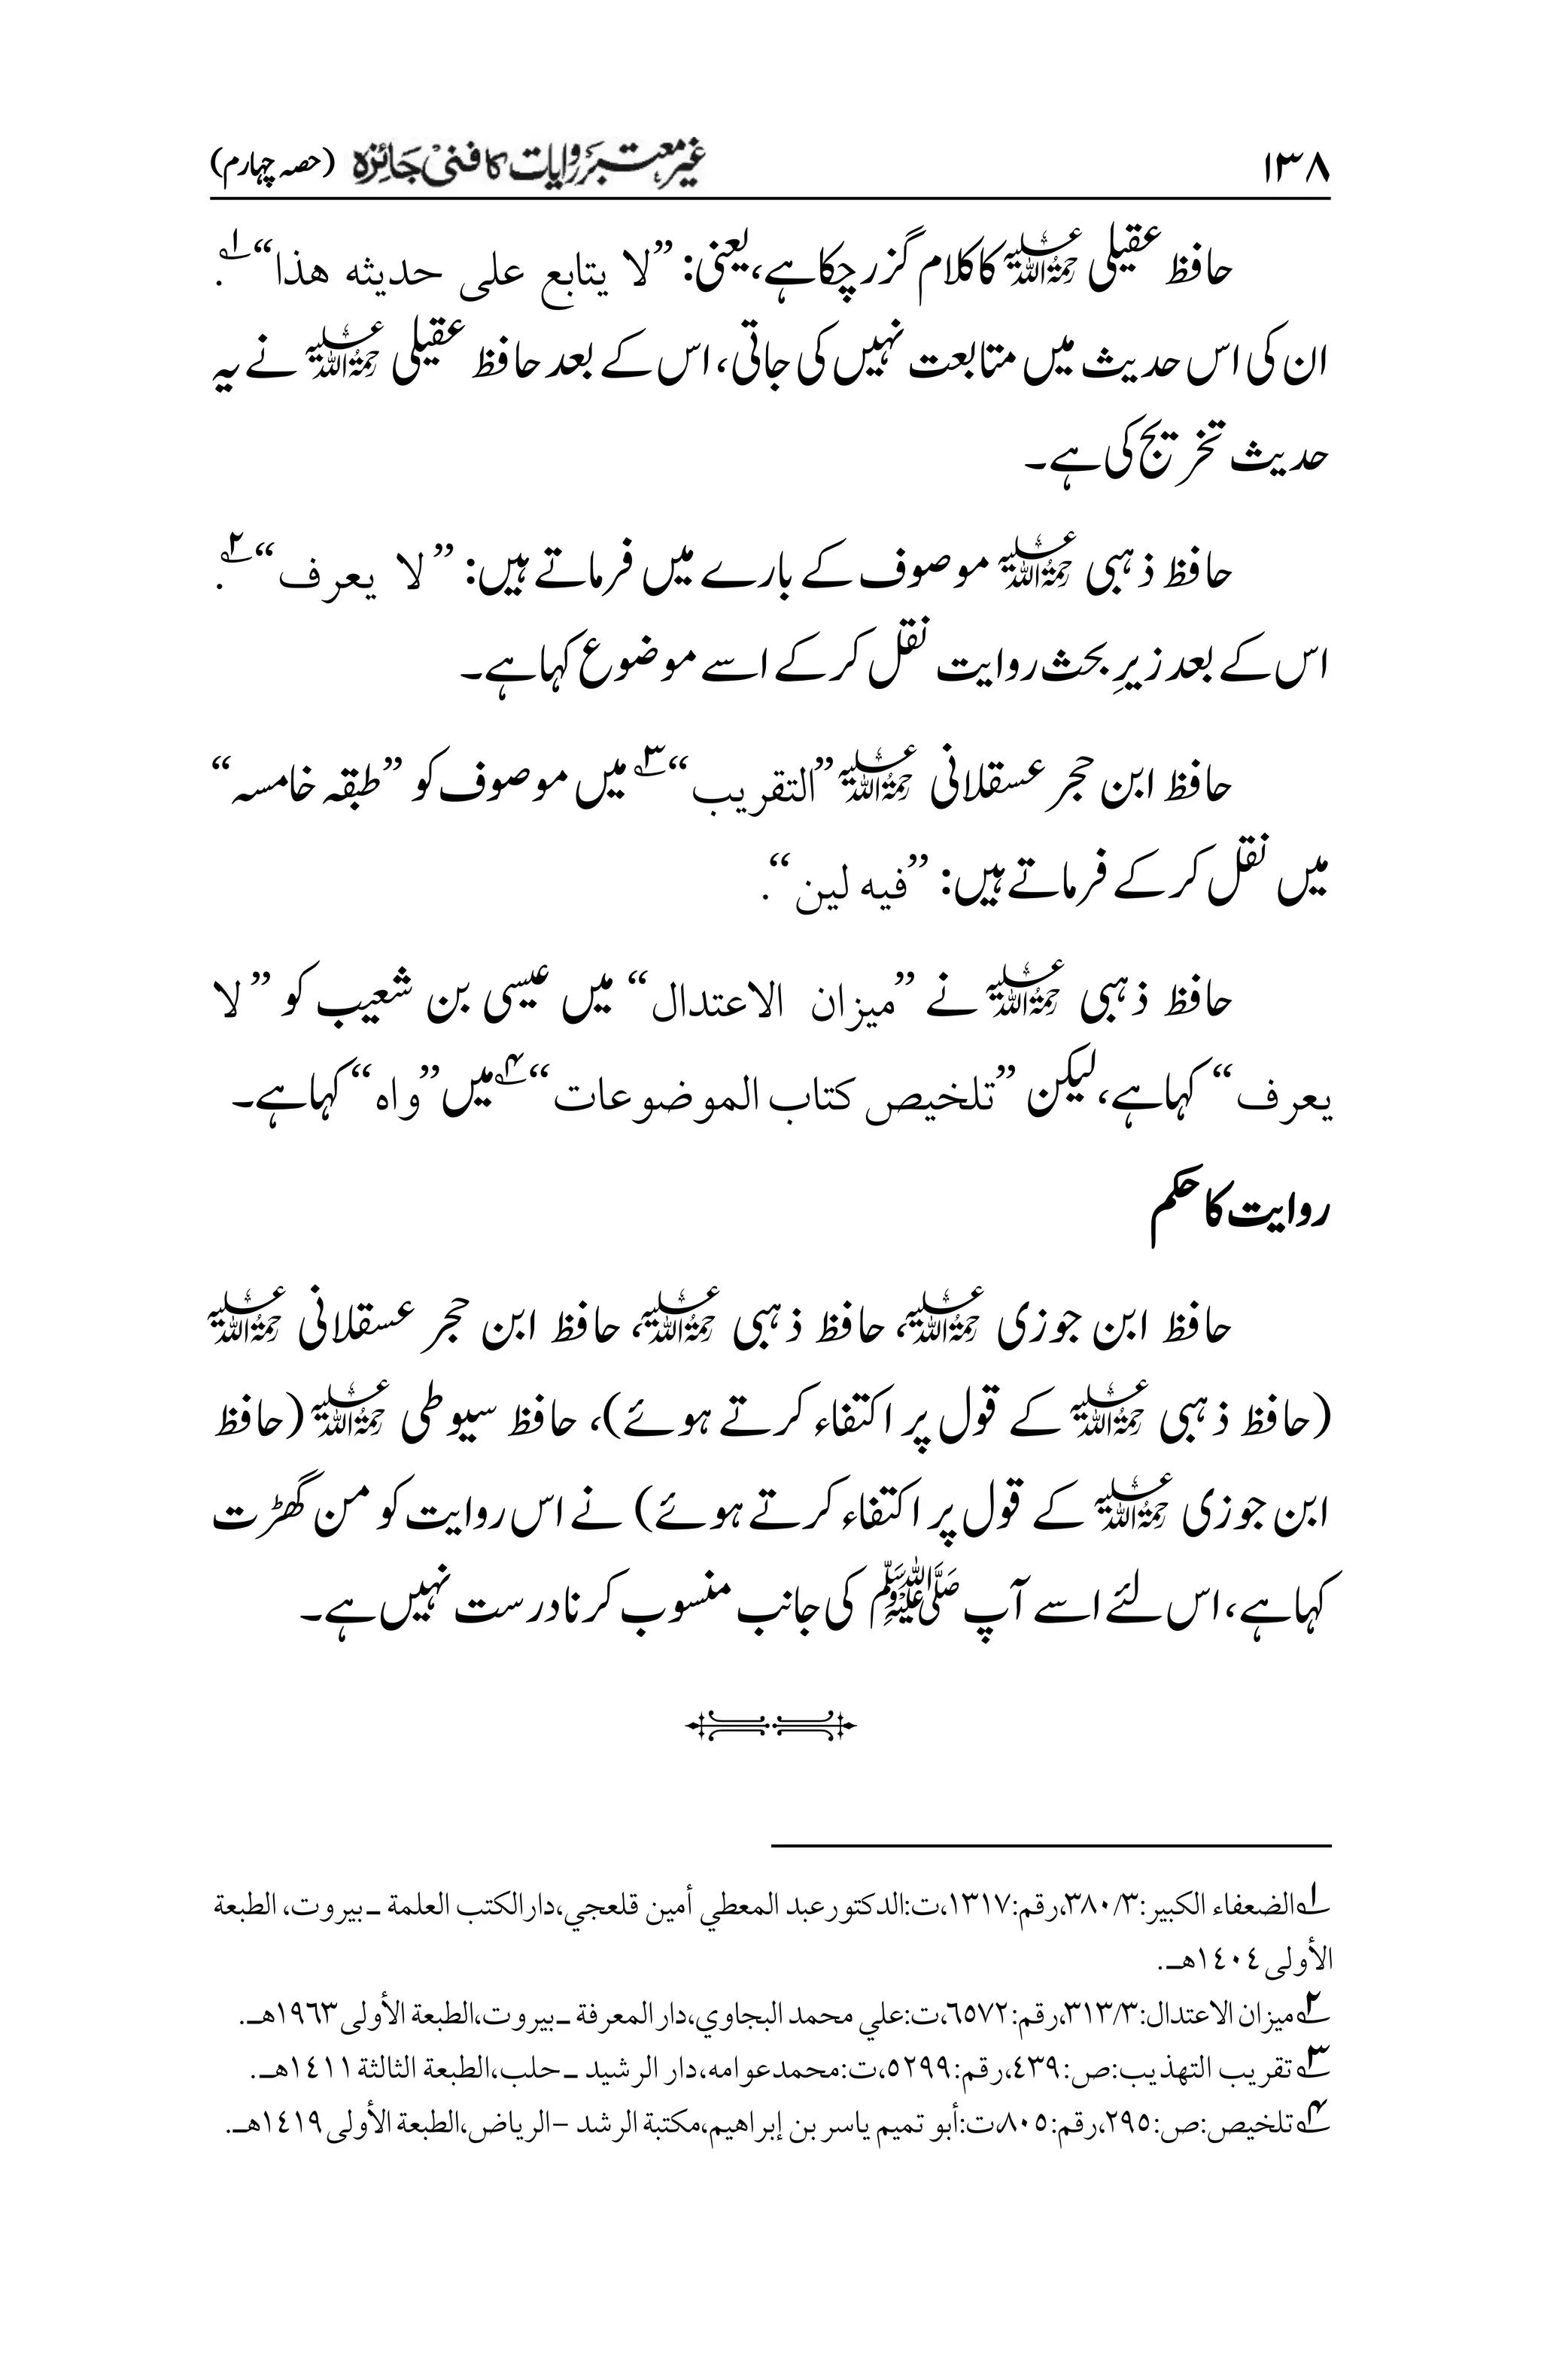 ۱۳۸ غیر معتبر روایات کا فنی جائزہ (حصہ چہارم)
حافظ عقیلی رحمۃ اللہ علیہ کا کلام گزر چکا ہے، یعنی: ”لا يتابع على حديثه هذا“ ۱؎.
ان کی اس حدیث میں متابعت نہیں کی جاتی، اس کے بعد حافظ عقیلی رحمۃ اللہ علیہ نے یہ
حدیث تخریج کی ہے۔
حافظ ذہبی رحمۃ اللہ علیہ موصوف کے بارے میں فرماتے ہیں: ”لا يعرف“ ۲؎.
اس کے بعد زیرِ بحث روایت نقل کر کے اسے موضوع کہا ہے۔
حافظ ابن حجر عسقلانی رحمۃ اللہ علیہ ”التقريب“ ۳؎ میں موصوف کو ”طبقہ خامسہ“
میں نقل کر کے فرماتے ہیں: ”فيه لين“.
حافظ ذہبی رحمۃ اللہ علیہ نے ”ميزان الاعتدال“ میں عیسی بن شعیب کو ”لا
يعرف“ کہا ہے، لیکن ”تلخيص كتاب الموضوعات“ ۴؎ میں ”واه“ کہا ہے۔
روایت کا حکم
حافظ ابن جوزی رحمۃ اللہ علیہ، حافظ ذہبی رحمۃ اللہ علیہ، حافظ ابن حجر عسقلانی رحمۃ اللہ علیہ
(حافظ ذہبی رحمۃ اللہ علیہ کے قول پر اکتفاء کرتے ہوئے)، حافظ سیوطی رحمۃ اللہ علیہ (حافظ
ابن جوزی رحمۃ اللہ علیہ کے قول پر اکتفاء کرتے ہوئے) نے اس روایت کو من گھڑت
کہا ہے، اس لئے اسے آپ ﷺ کی جانب منسوب کرنا درست نہیں ہے۔
۱؎ الضعفاء الكبير:٣/٣٨٠،رقم:١٣١٧،ت:الدكتور عبد المعطي أمين قلعجي،دار الكتب العلمة ـ بيروت، الطبعة
الأولى ١٤٠٤هـ.
۲؎ ميزان الاعتدال:٣/٣١٣،رقم:٦٥٧٢،ت:علي محمد البجاوي،دار المعرفة ـ بيروت،الطبعة الأولى ١٩٦٣هـ.
۳؎ تقريب التهذيب:ص:٤٣٩،رقم:٥٢٩٩،ت:محمد عوامه،دار الرشيد ـ حلب،الطبعة الثالثة ١٤١١هـ.
۴؎ تلخيص:ص:٢٩٥،رقم:٨٠٥،ت:أبو تميم ياسر بن إبراهيم،مكتبة الرشد - الرياض،الطبعة الأولى ١٤١٩هـ.